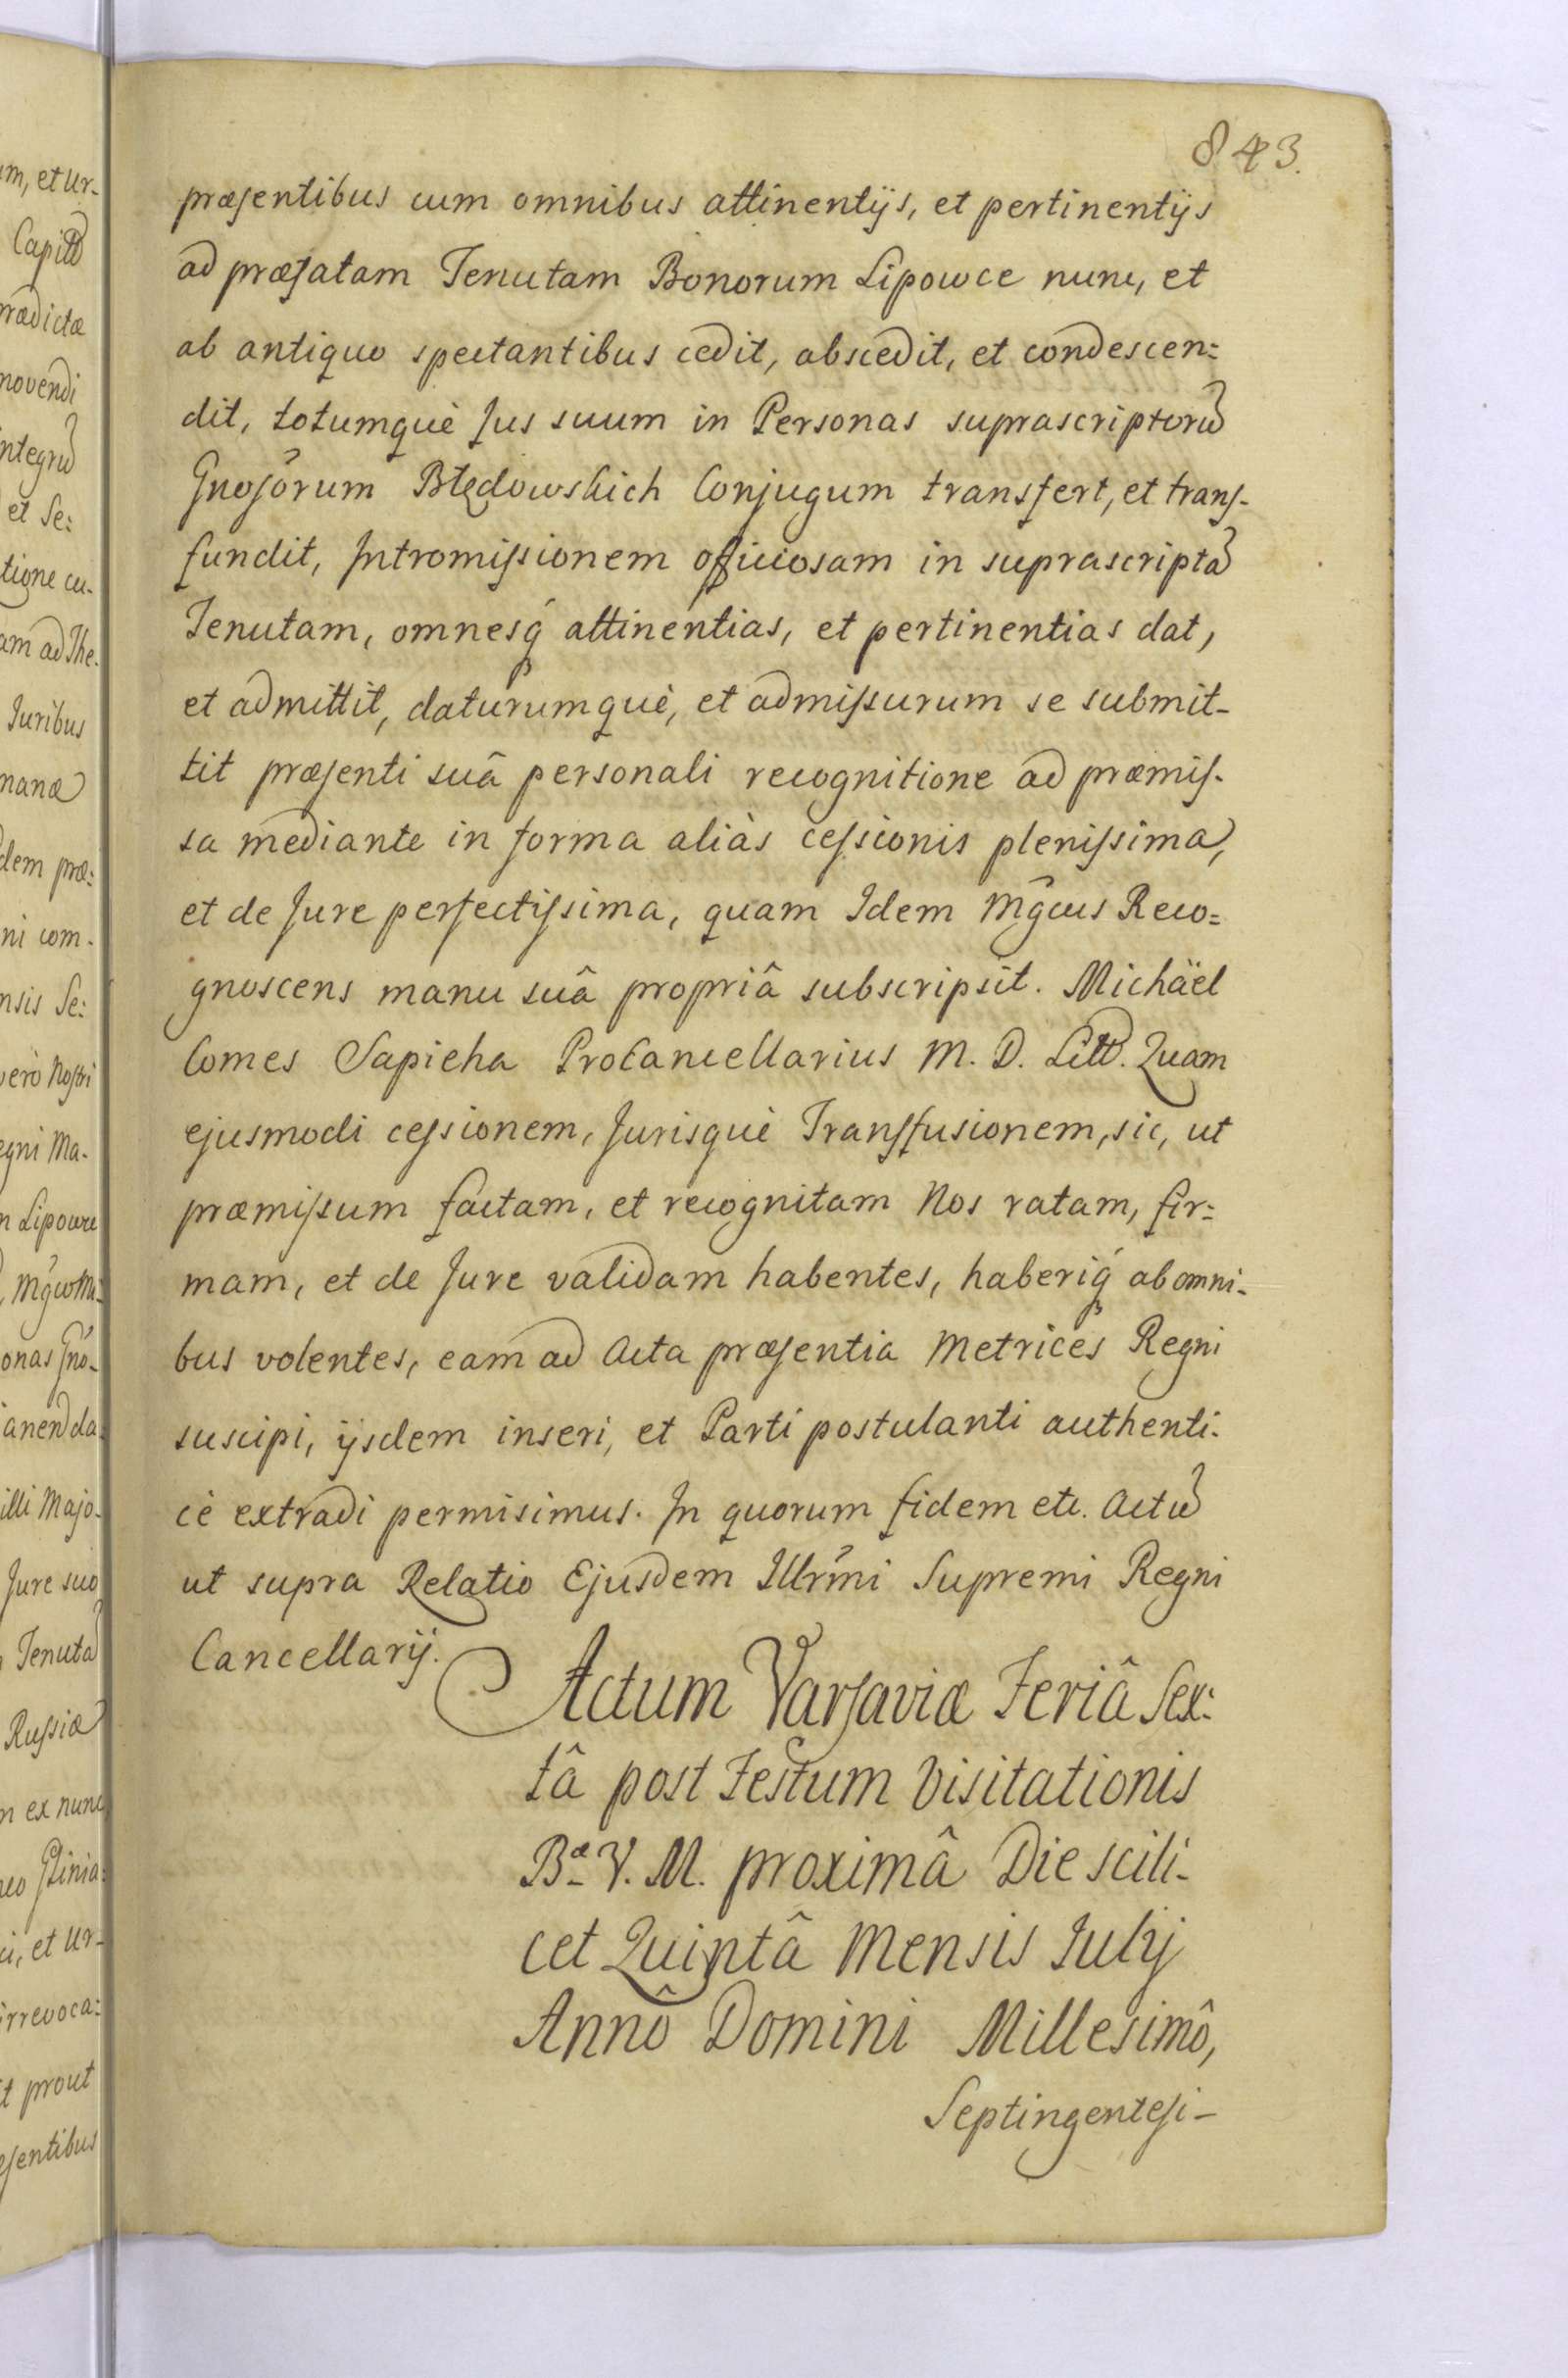 843.
præsentibus cum omnibus attinentijs, et pertinentijs
ad præfatam Tenutam Bonorum Lipowce nunc, et
ab antiquo spectantibus cedit, abscedit, et condescen:
dit, totumquè Jus suum in Personas suprascriptorũ
Gnosõrum Błędowskich Conjugum transfert, et trans-
fundit, Intromissionem officiosam in suprascriptã
Tenutam, omnesq́ attinentias, et pertinentias dat,
et admittit, daturumquè, et admissurum se submit-
tit præsenti suâ personali recognitione ad præmis-
sa mediante in forma aliàs cessionis plenissima,
et de Jure perfectissima, quam Idem Mg̃cus Reco=
gnoscens manu suâ propriâ subscripsit. Michäel
Comes Sapieha ProCancellarius M. D. Litt. Quam
ejusmodi cessionem, Jurisquè Transfusionem, sic, ut
præmissum factam, et recognitam Nos ratam, fir=
mam, et de Jure validam habentes, haberiq́ ab omni-
bus volentes, eam ad Acta præsentia Metrices Regni
suscipi, ijsdem inseri, et Parti postulanti authenti-
cè extradi permisimus. In quorum fidem etc. Actũ
ut supra Relatio Ejusdem Illr̃mi Supremi Regni
Cancellarij.
Actum Varsaviæ Feriâ Sex:
tâ post Festum Visitationis
Bæ V. M. proximâ Die scili-
cet Quintâ Mensis Julij
Annô Domini Millesimô,
Septingentesi-